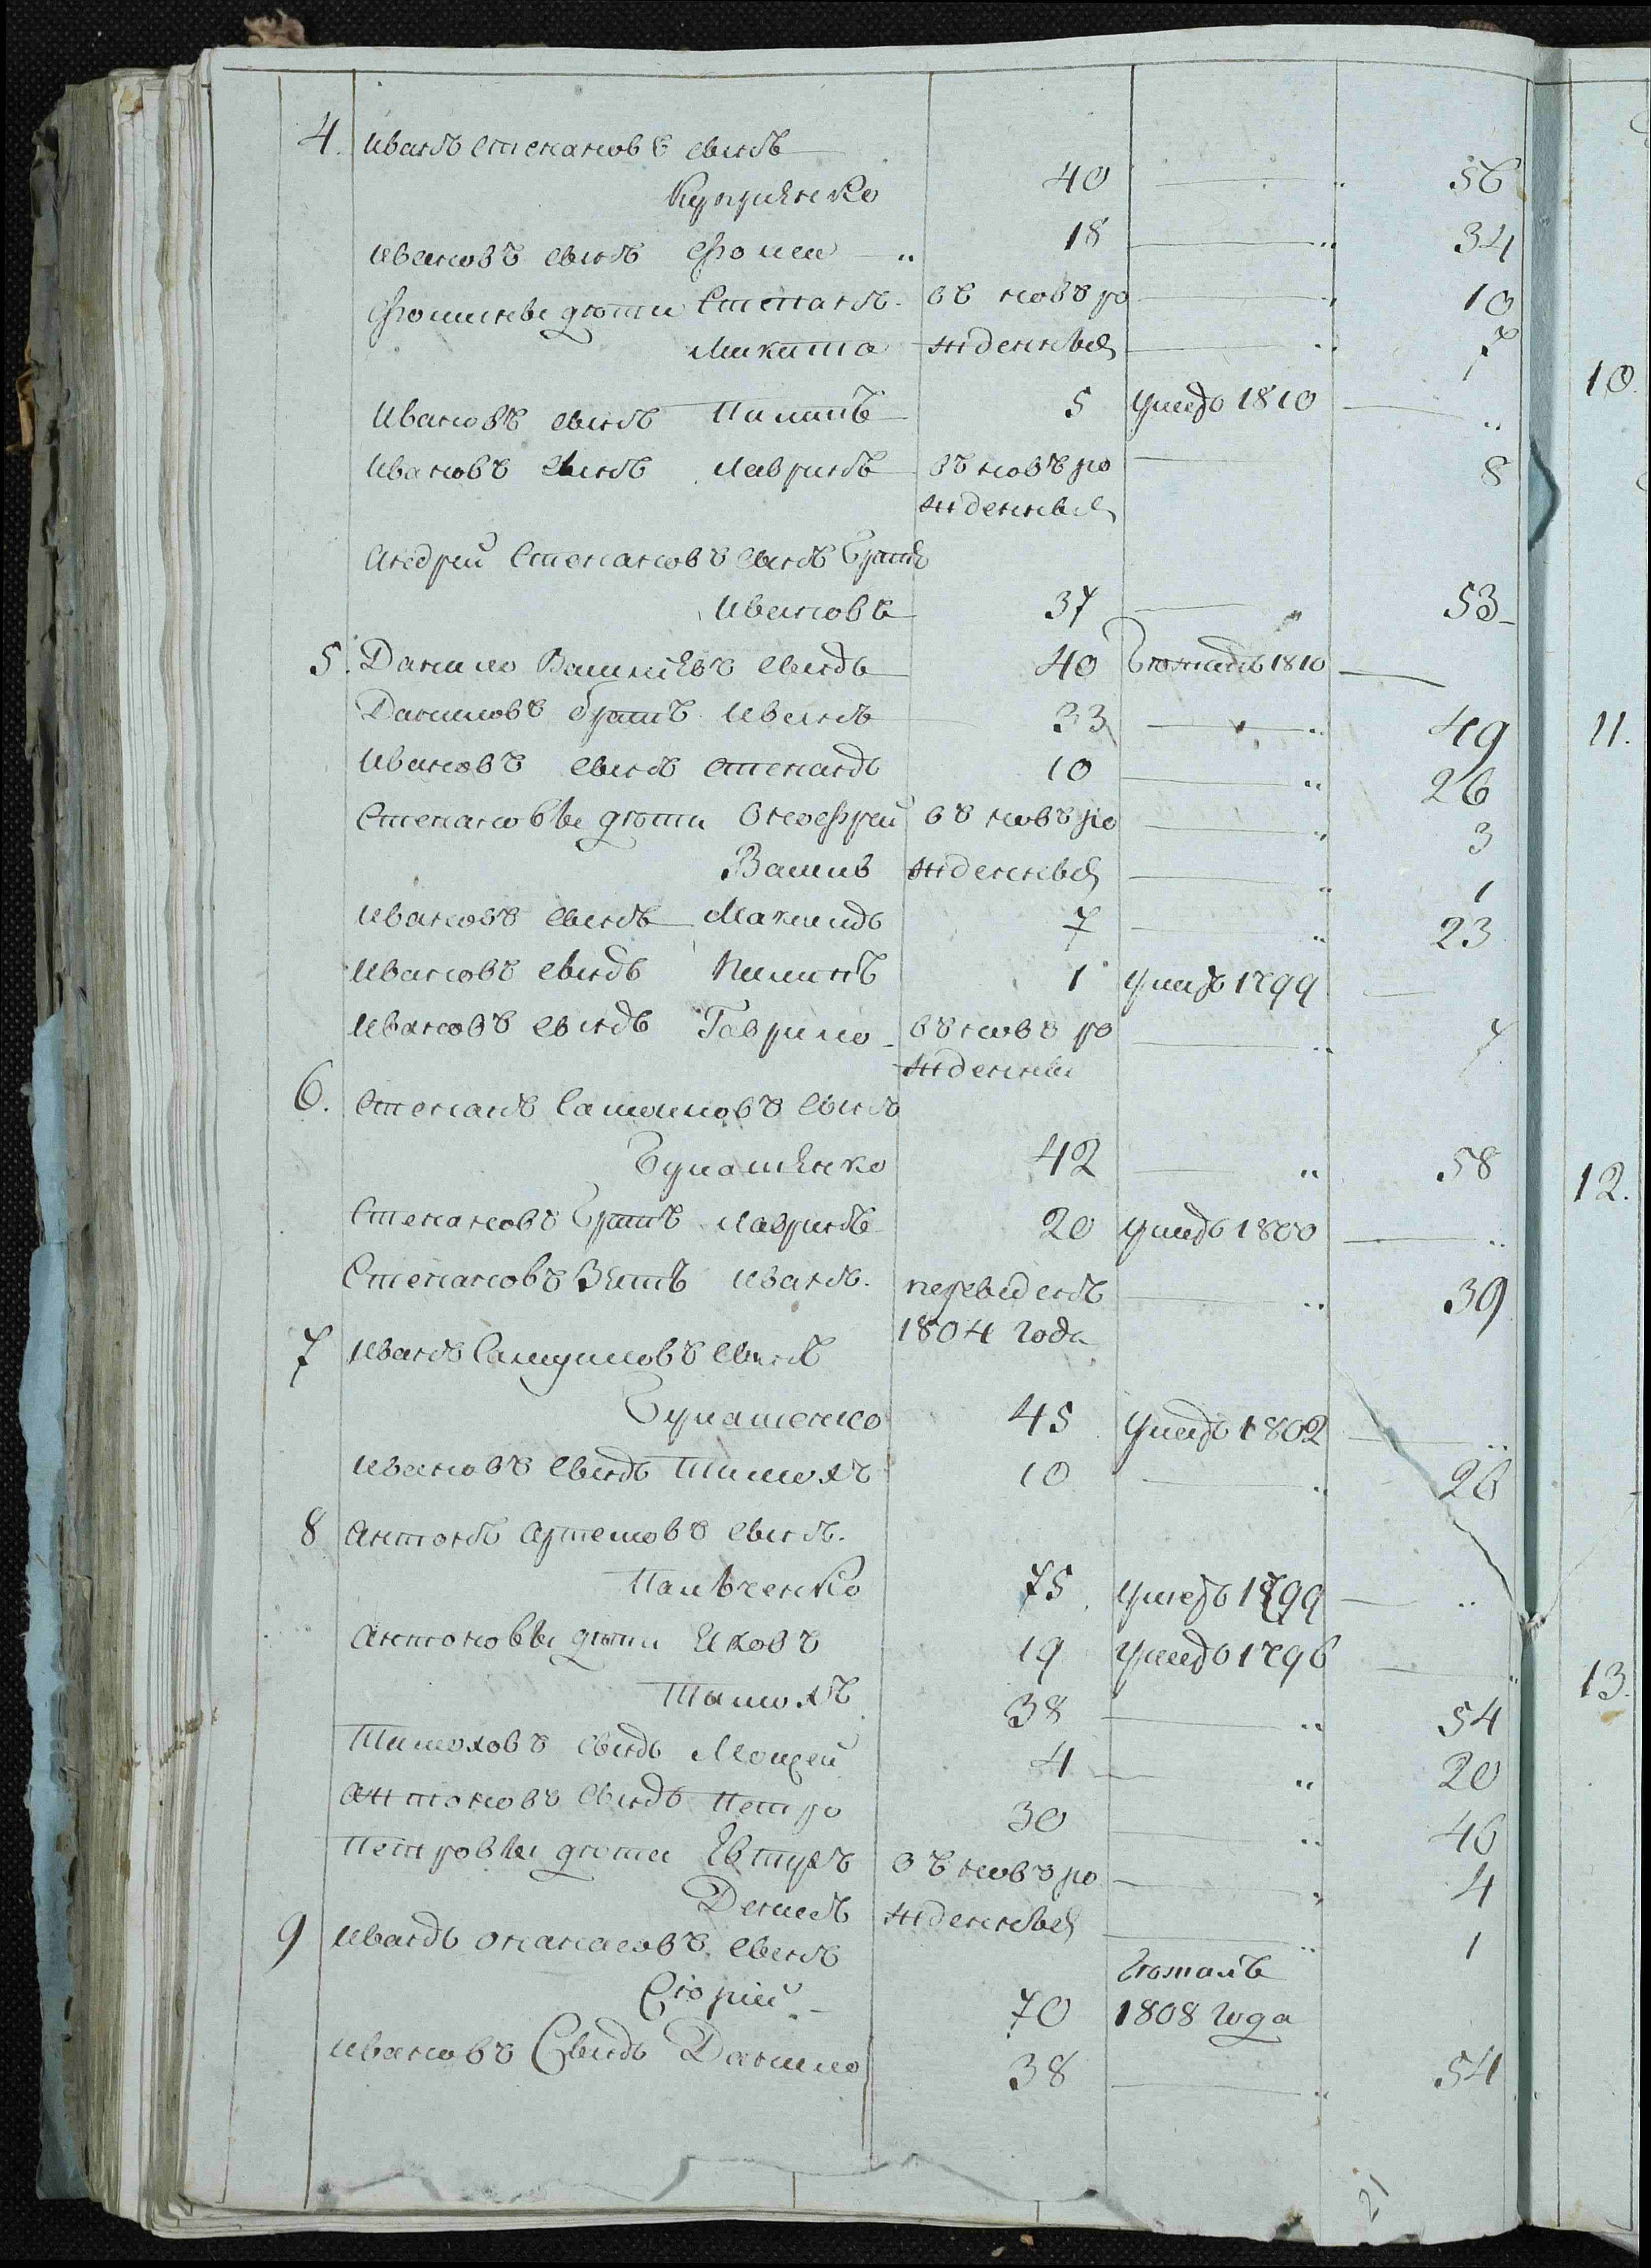 4. Иванъ Степановъ сынъ
Купріенко 40 — „ 56
Ивановъ сынъ Фома „ 18 — „ 34
Фомины дѣти Степанъ въ новъ ро — „ 10
Микита жденныя — „ 7
Ивановъ сынъ Пилипъ 5 умеръ 1810 — „
Ивановъ сынъ Лавринъ въ новъ ро — 8
жденныя
Андрей Степановъ сынъ братъ
Ивановъ 37 — „ 53
5. Данило сынъ 40 бежалъ 1810 —
Даниловъ братъ Иванъ 33 — „ 49
Ивановъ сынъ Степанъ 10 — „ 26
Степановы дѣти Онофрей въ новъ ро — „ 3
Василь жденныя — „ 1
Ивановъ сынъ Максимъ 7 — „ 23
Ивановъ сынъ Пилипъ 1 умеръ 1799 —
Ивановъ сынъ Гаврило въ новъ ро — „ 7
жденны
6. Степанъ Самойловъ сынъ
42 — „ 58
Степановъ братъ Лавринъ 20 умеръ 1800 — „
Степановъ зять Иванъ переведенъ — „ 39
1804 года
7 Иванъ сынъ
45 умеръ 1802 — „
Ивановъ сынъ Тимохъ 10 — „ 26
8 Антонъ Артемовъ сынъ
Пальченко 75 умеръ 1799 — „
Антоновы дѣти Яковъ 19 умеръ 1796 — „
Тимохъ 38 — „ 54
Тимоховъ сынъ Моисей 4 — „ 20
Антоновъ сынъ Петро 30 — „ 46
Петровы дѣти Евтухъ въ новъ ро — „ 4
Денисъ жденныя — „ 1
9 Иванъ сынъ бежалъ
70 1808 года
Ивановъ Сынъ Данило 38 — „ 54
21
10.
11.
12.
13.